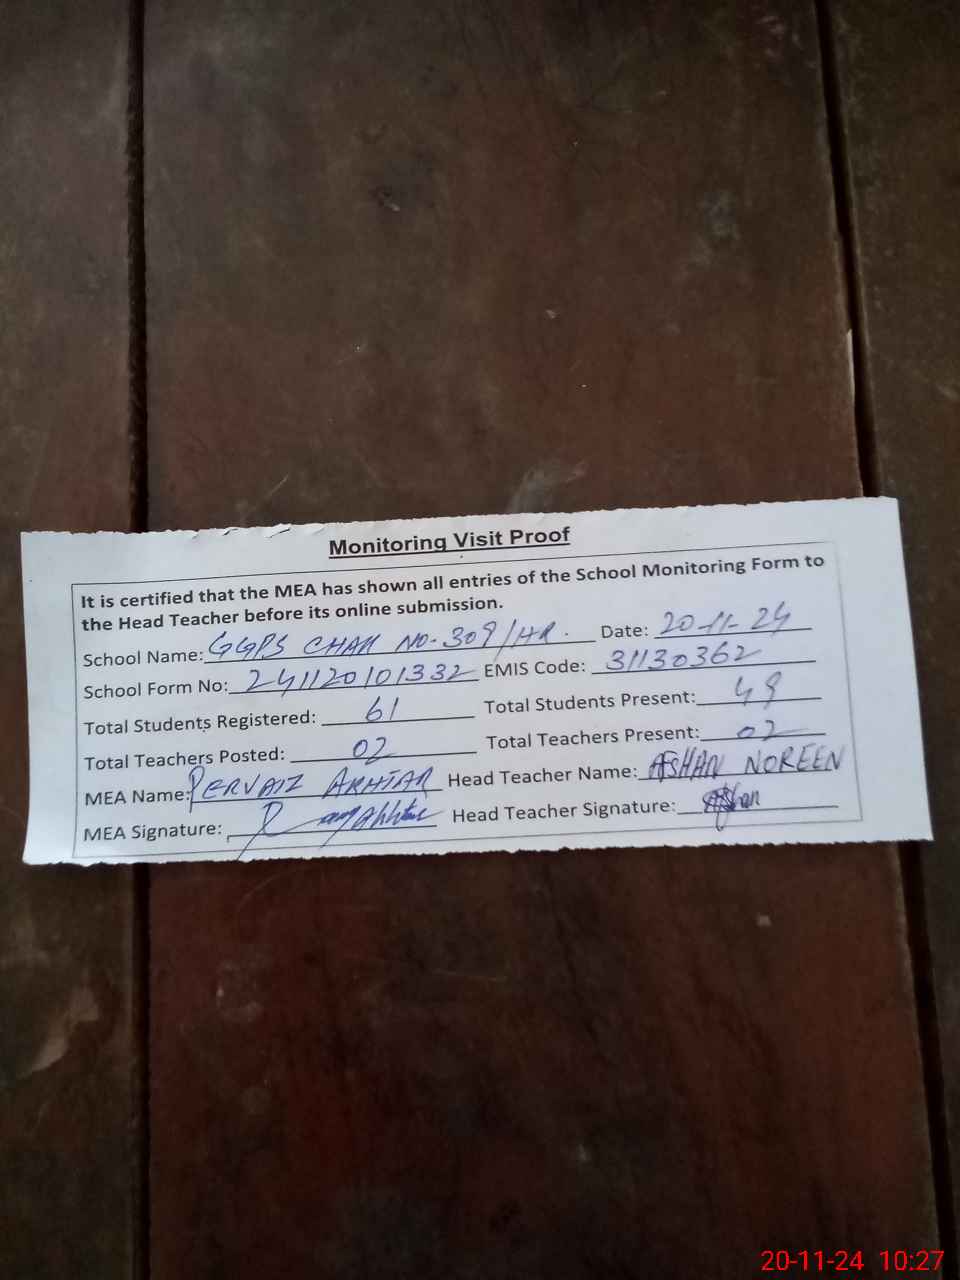 Monitoring Visit Proof
It is certified that the MEA has shown all entries of the School Monitoring Form to
the Head Teacher before its online submission.
School Name: GGPS CHAK NO-309/HR. Date: 20-11-24
School Form No: 241120101332 EMIS Code: 31130362
Total Students Registered: 61 Total Students Present: 49
Total Teachers Posted: 02 Total Teachers Present: 02
MEA Name: PERVAIZ AKHTAR Head Teacher Name: AFSHAN NOREEN
MEA Signature: Head Teacher Signature: Afshan
20-11-24 10:27